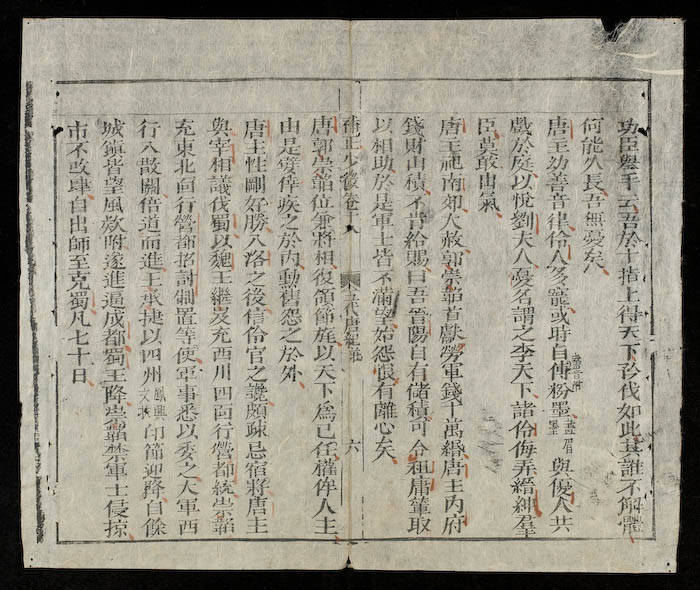 功臣舉手云吾於十指上得天下矜伐如此其誰不解體
何能久長吾無憂矣
唐主幼善音律伶人多寵或時自傅粉墨與優人共
戲於庭以悅劉夫人憂名謂之李天下諸伶侮弄縉紳羣
臣莫敢出氣
唐主祀南郊大赦郭崇韜首獻勞軍錢十萬緡唐主內府
錢財山積不肯給賜曰吾晉陽自有儲積可令租庸輦取
以相助於是軍士皆不滿望始怨恨有離心矣
正少微卷十八 五代唐紀 六
唐郭崇韜位兼將相復領節旄以天下為己任權侔人主
由是嬖倖疾之於內勳舊怨之於外
唐主性剛好勝入洛之後信伶官之讒頗疎忌宿將唐主
與宰相議伐蜀以魏王繼岌充西川四面行營都統崇韜
充東北面行營都招討制置等使軍事悉以委之大軍西
行入散關倍道而進王承捷以四州鳳興文扶印節迎降自餘
城鎮皆望風欵附遂進逼成都蜀王降崇韜禁軍士侵掠
市不改肆自出師至克蜀凡七十日